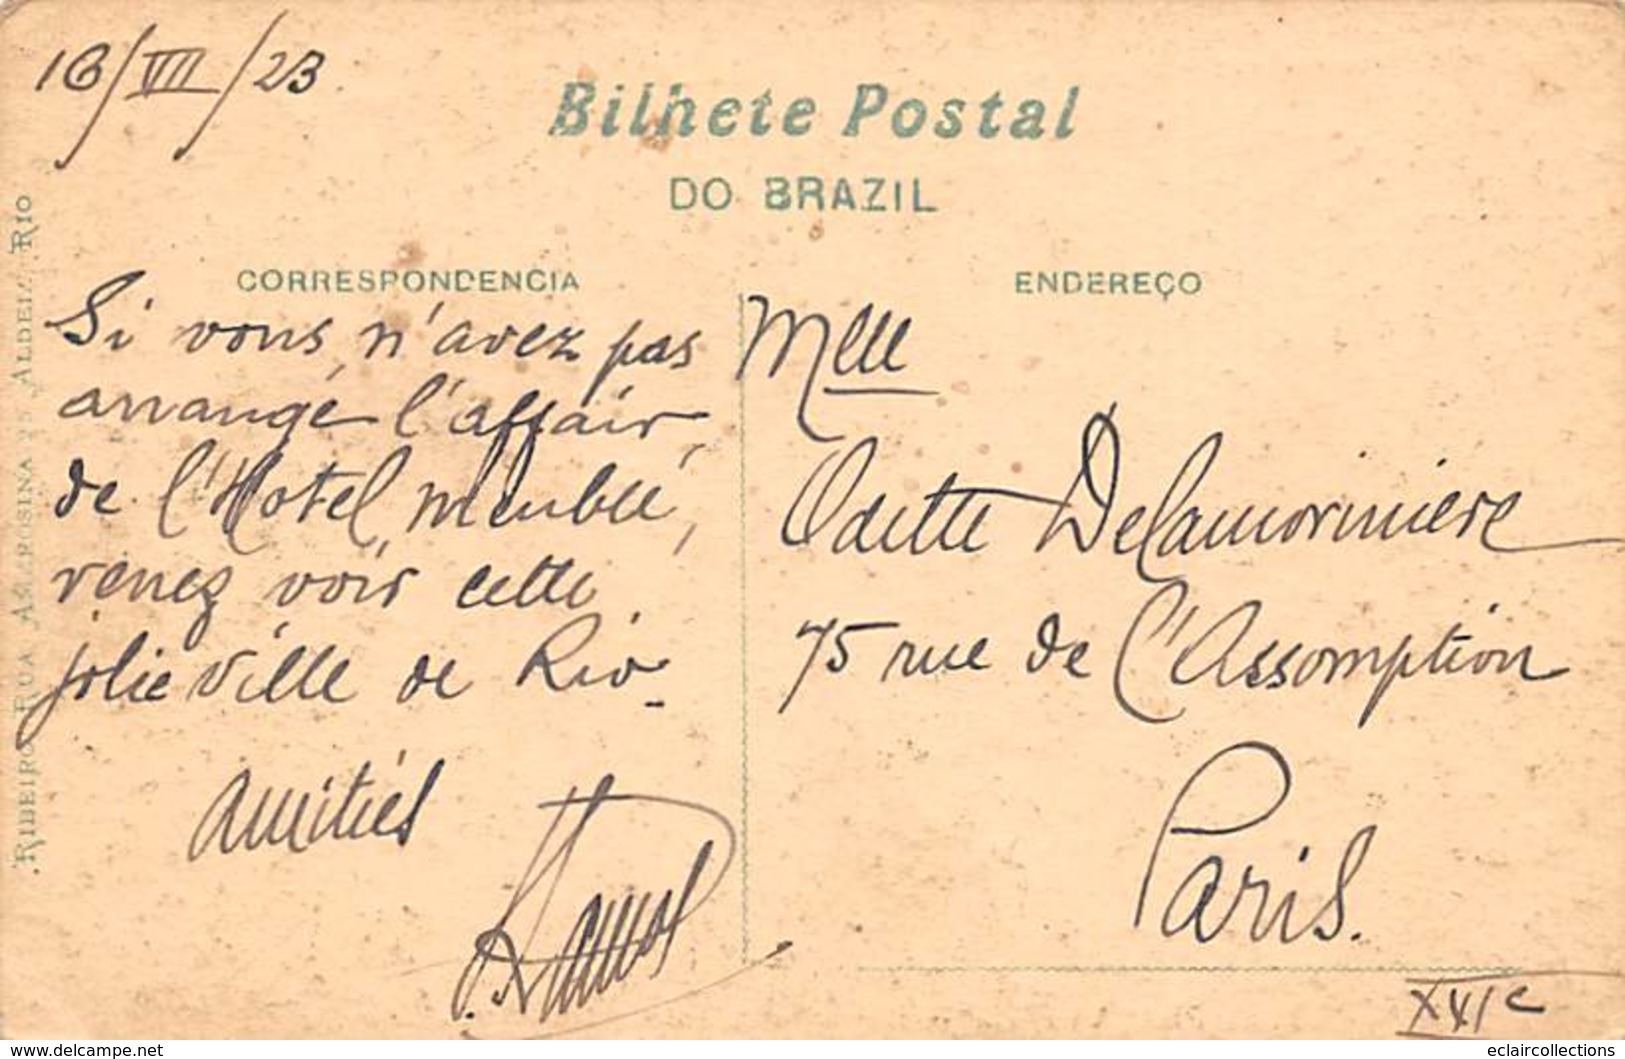 16/VII/23.
Bilhete Postal
DO BRAZIL
CORRESPONDENCIA
ENDEREÇO
Si vous n'avez pas
arrangé l'affair
de l'Hotel meublé,
venez voir cette
jolie ville de Rio.
Amitiés
Mlle
Odette Delamorinière
75 rue de l'Assomption
Paris.
XVIe
RIBEIRO RUA AMBROSINA 25 ALDEIA RIO
www.delcampe.net
eclaircollections